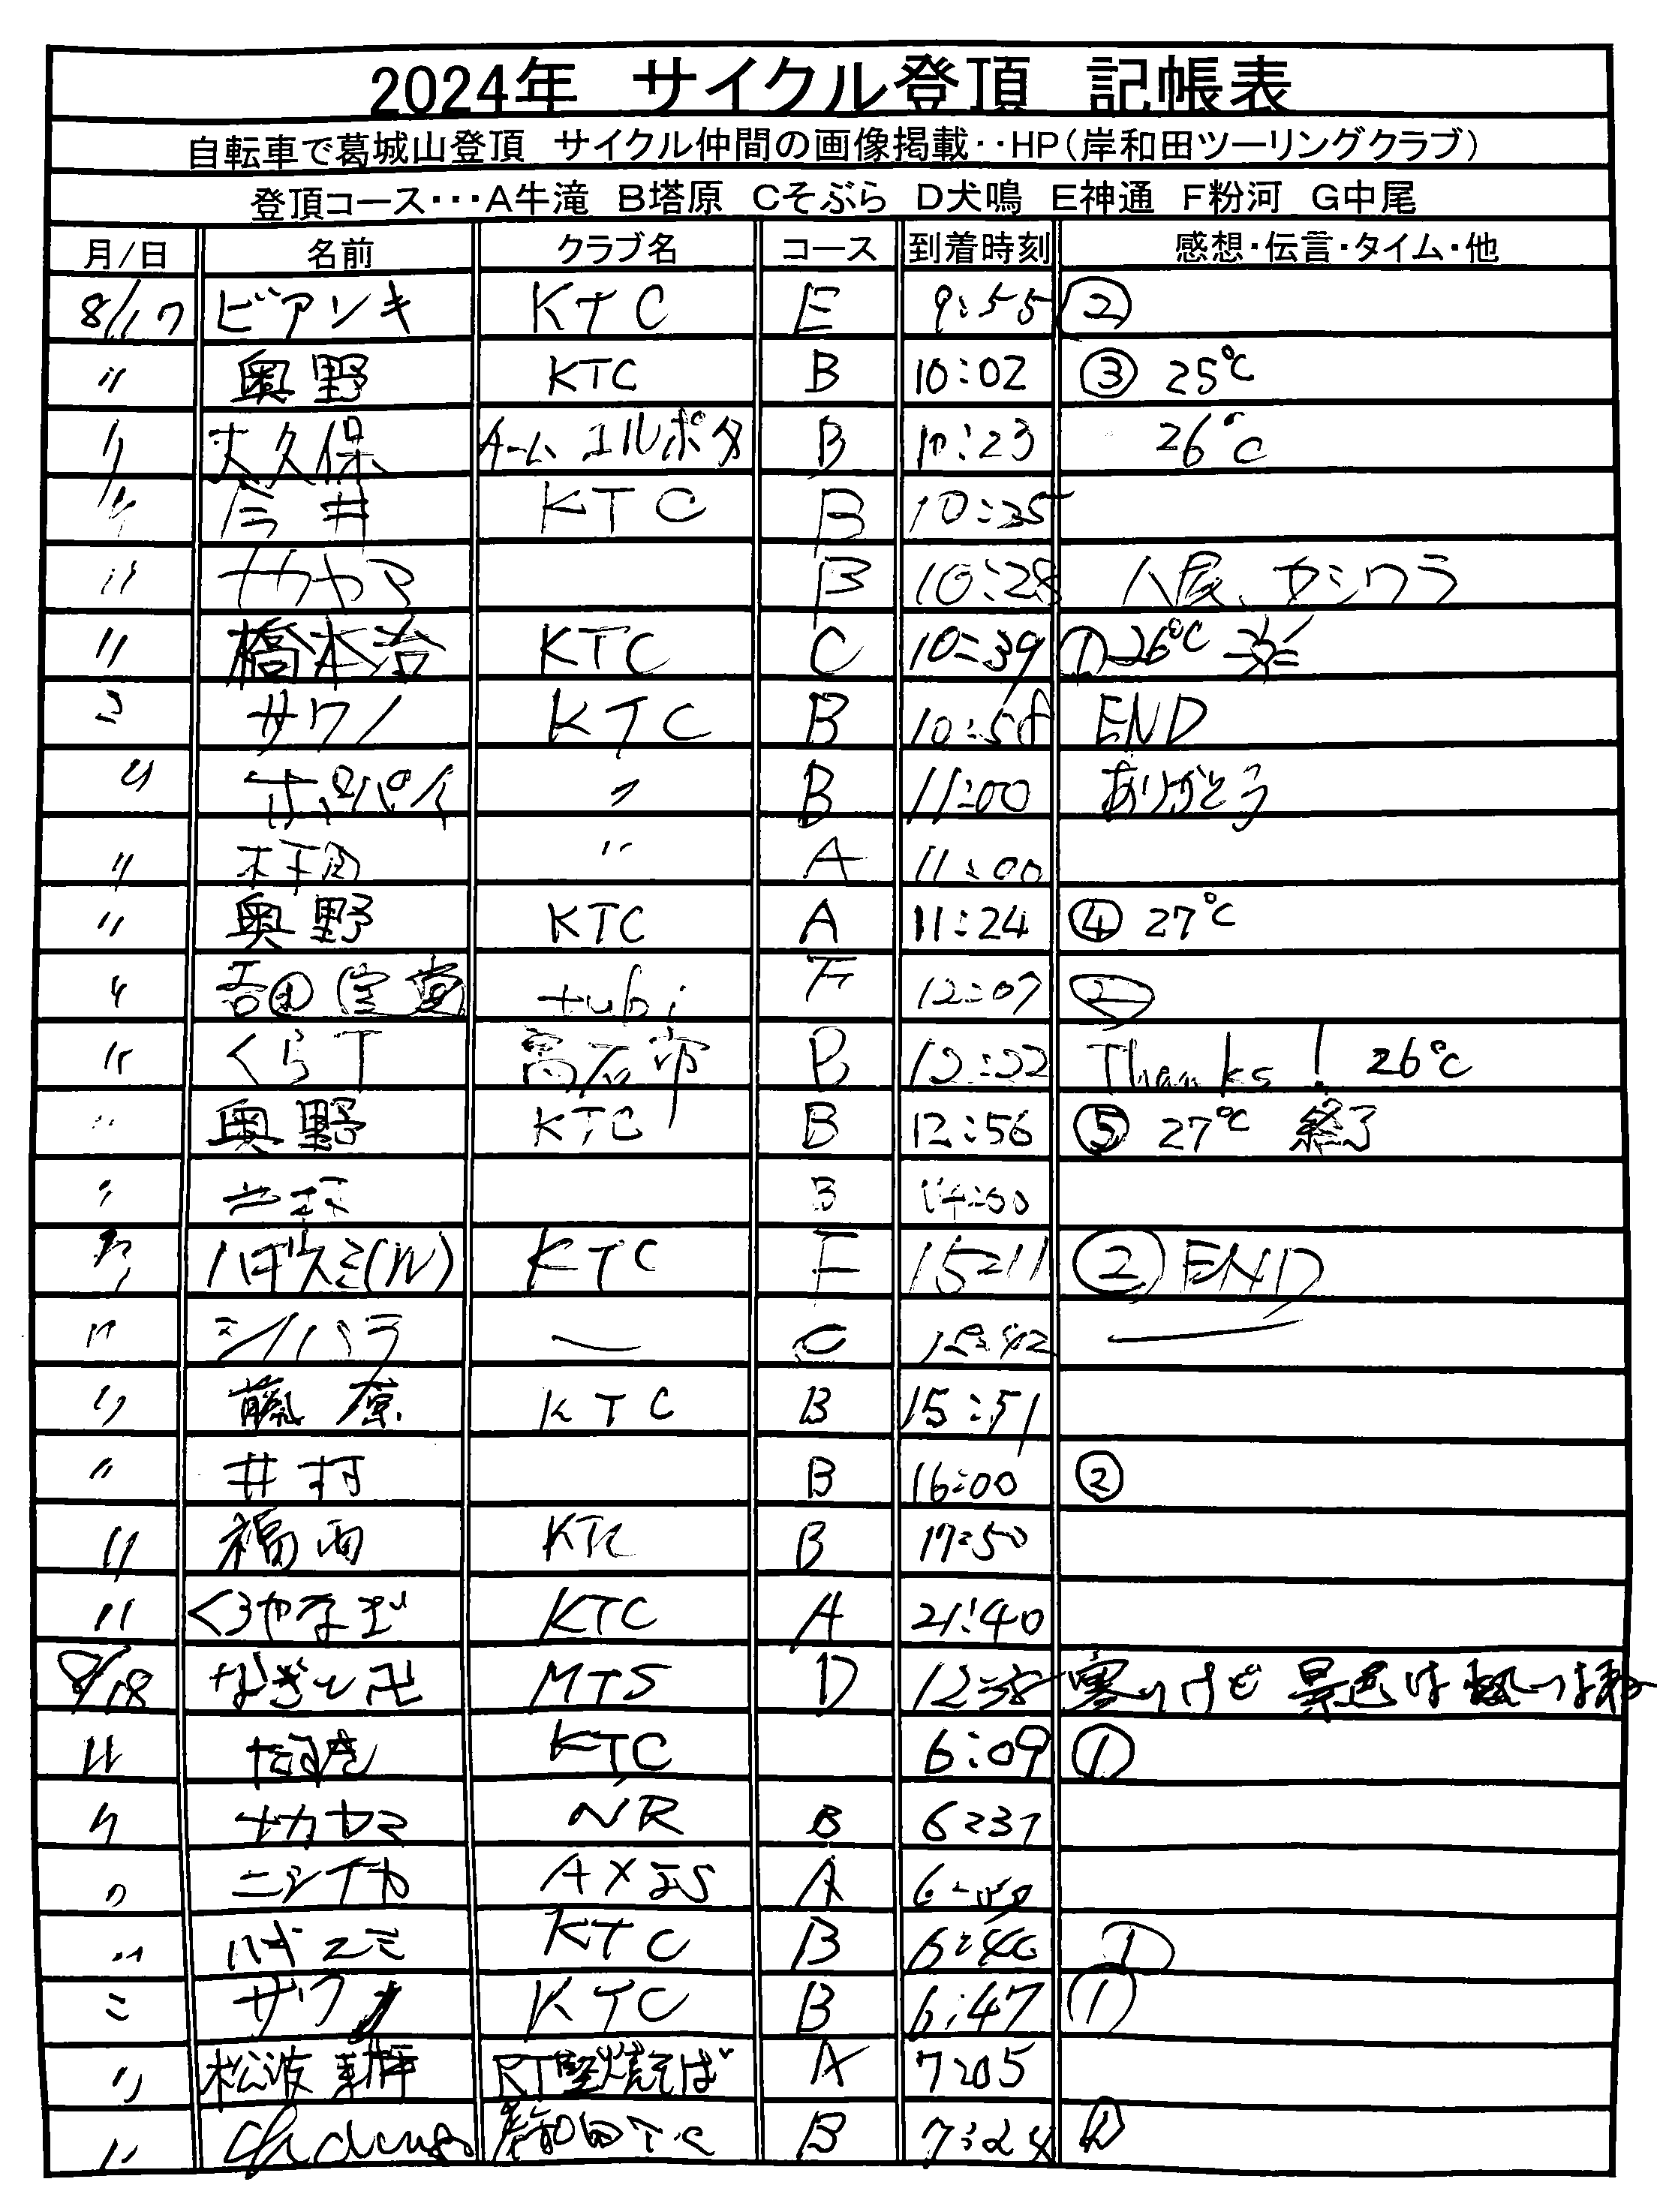 2024年 サイクル登頂 記帳表
自転車で葛城山登頂 サイクル仲間の画像掲載‥HP(岸和田ツーリングクラブ)
登頂コース･･･A牛滝 B塔原 Cそぶら D犬鳴 E神通 F粉河 G中尾
月/日 名前 クラブ名 コース 到着時刻 感想・伝言・タイム・他
8/17 ビアンキ KTC E 9:55 ②
〃 奥野 KTC B 10:02 ③ 25℃
〃 大久保 チーム ユルポタ B 10:23 26℃
〃 今井 KTC B 10:35
〃 ナカヤマ B 10:28 八尾、カシワラ
〃 橋本治 KTC C 10:39 ① 26℃
〃 サワノ KTC B 10:58 END
〃 ポパイ 〃 B 11:00 ありがとう
〃 〃 A 11:00
〃 奥野 KTC A 11:24 ④ 27℃
〃 吉田 tubi F 12:07 ②
〃 くらT 高石市 B 12:22 Thanks! 26℃
〃 奥野 KTC B 12:56 ⑤ 27℃ 終了
〃 B 14:00
〃 ハギズミ(W) KTC F 15:11 ② END
〃 シノハラ — C
〃 藤原 KTC B 15:51
〃 井村 B 16:00 ②
〃 福西 KTC B 17:50
〃 くろやなぎ KTC A 21:40
8/18 なぎと卍 MTS D 寒いけど 景色は
〃 たまき KTC 6:09 ①
〃 ナカヤマ NR B 6:37
〃 ニシイカ A
〃 ハギズミ KTC B 6:46 ①
〃 サワノ KTC B 6:47 ①
〃 松波 RT堅焼そば A 7:05
〃 岸和田TC B 7:24